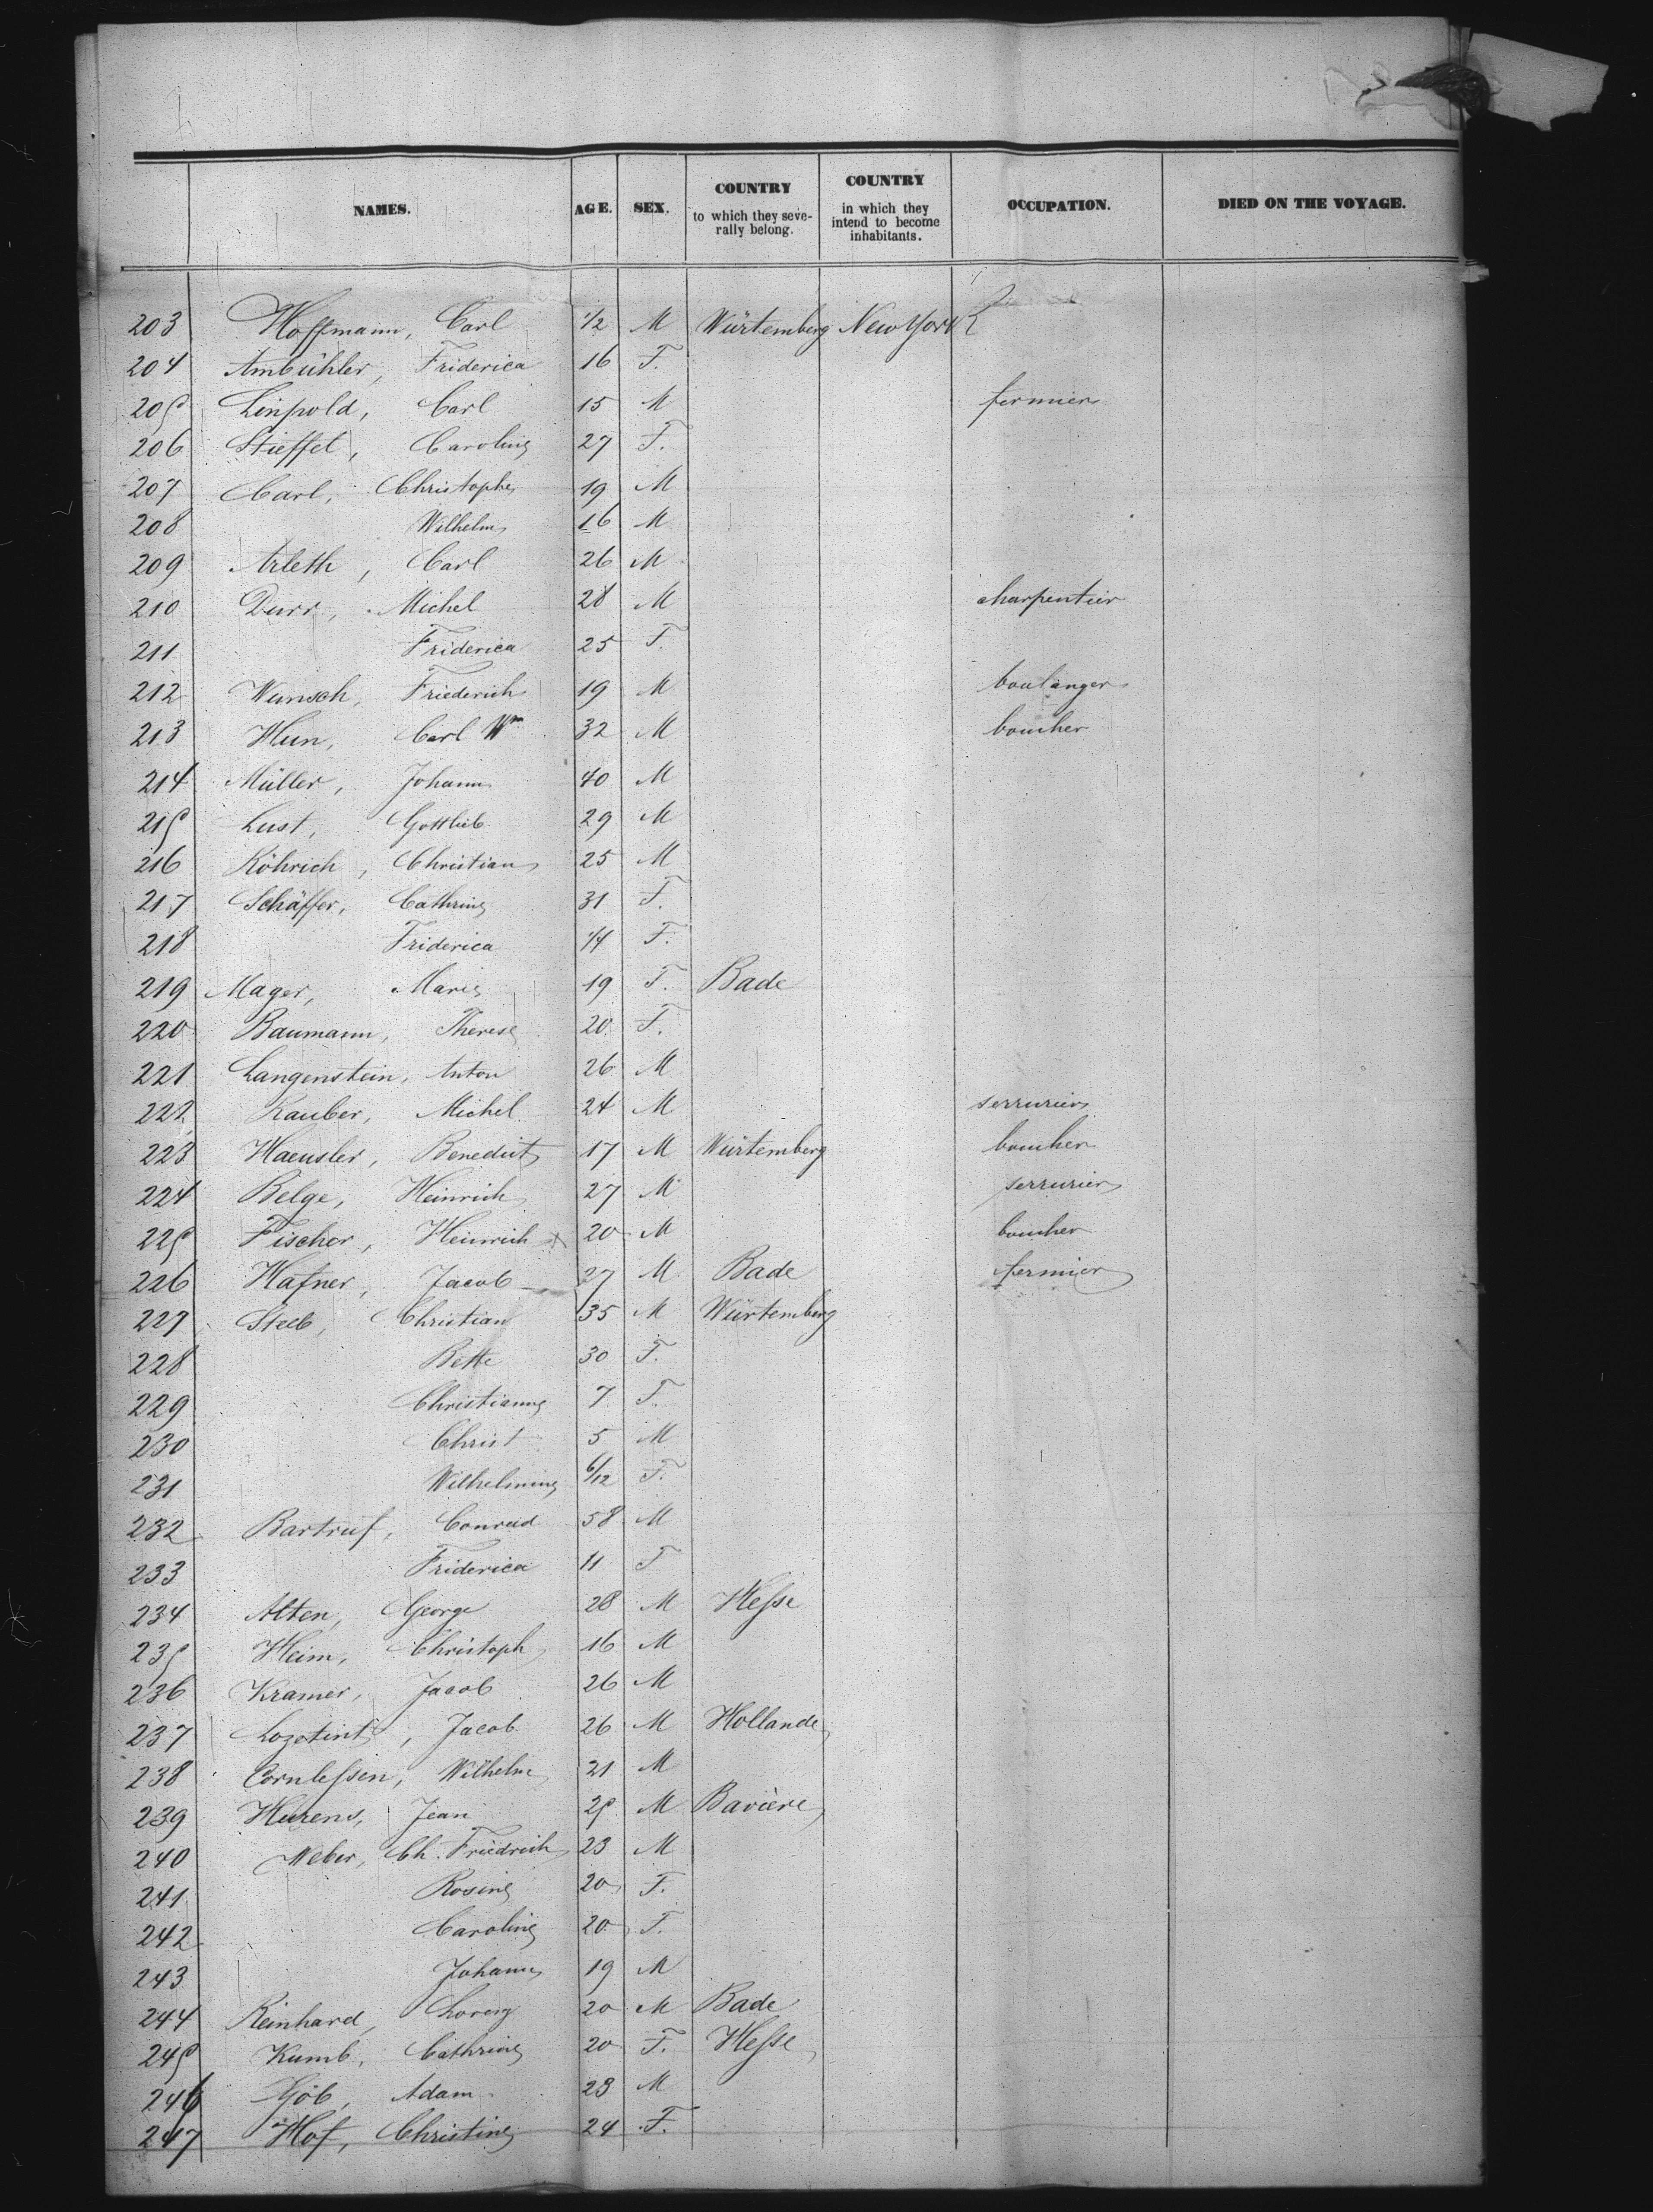 NAMES. AGE. SEX. COUNTRY to which they seve-rally belong. COUNTRY in which they intend to become inhabitants. OCCUPATION. DIED ON THE VOYAGE.
203 Hoffmann, Carl 1/2 M Würtemberg New York
204 Ambühler, Friderica 16 F.
205 Linpold, Carl 15 M fermier
206 Stieffel, Caroline 27 F.
207 Carl, Christophe 19 M
208 Wilhelm 16 M
209 Arleth, Carl 26 M
210 Durr, Michel 28 M charpentier
211 Friderica 25 F.
212 Wunsch, Friederich 19 M boulanger
213 Hun, Carl Wm 32 M boucher
214 Müller, Johann 40 M
215 Lust, Gottlieb 29 M
216 Köhrich, Christian 25 M
217 Schäffer, Cathrine 31 F.
218 Friderica 1/4 F.
219 Mager, Marie 19 F. Bade
220 Baumann, Therese 20 F.
221 Langenstein, Anton 26 M
222 Rauber, Michel 24 M serrurier
223 Haeusler, Benedict 17 M Würtemberg boucher
224 Belge, Heinrich 27 M serrurier
225 Fischer, Heinrich x 20 M boucher
226 Hafner, Jacob 27 M Bade fermier
227 Steeb, Christian 35 M Würtemberg
228 Bette 30 F.
229 Christianne 7 F.
230 Christ 5 M
231 Wilhelmine 6/12 F.
232 Bartruf, Conrad 58 M
233 Friderica 11 F
234 Alten, George 28 M Hesse
235 Heim, Christoph 16 M
236 Kramer, Jacob 26 M
237 Jacob 26 M Hollande
238 Cornlessen, Wilhelm 21 M
239 Hurens, Jean 25 M Bavière
240 Weber, Ch. Friedrich 23 M
241 Rosine 20 F.
242 Caroline 20 F.
243 Johann 19 M
244 Reinhard, Lorenz 20 M Bade
245 Kumb, Cathrine 20 F. Hesse
246 Adam 23 M
247 Hof, Christine 24 F.